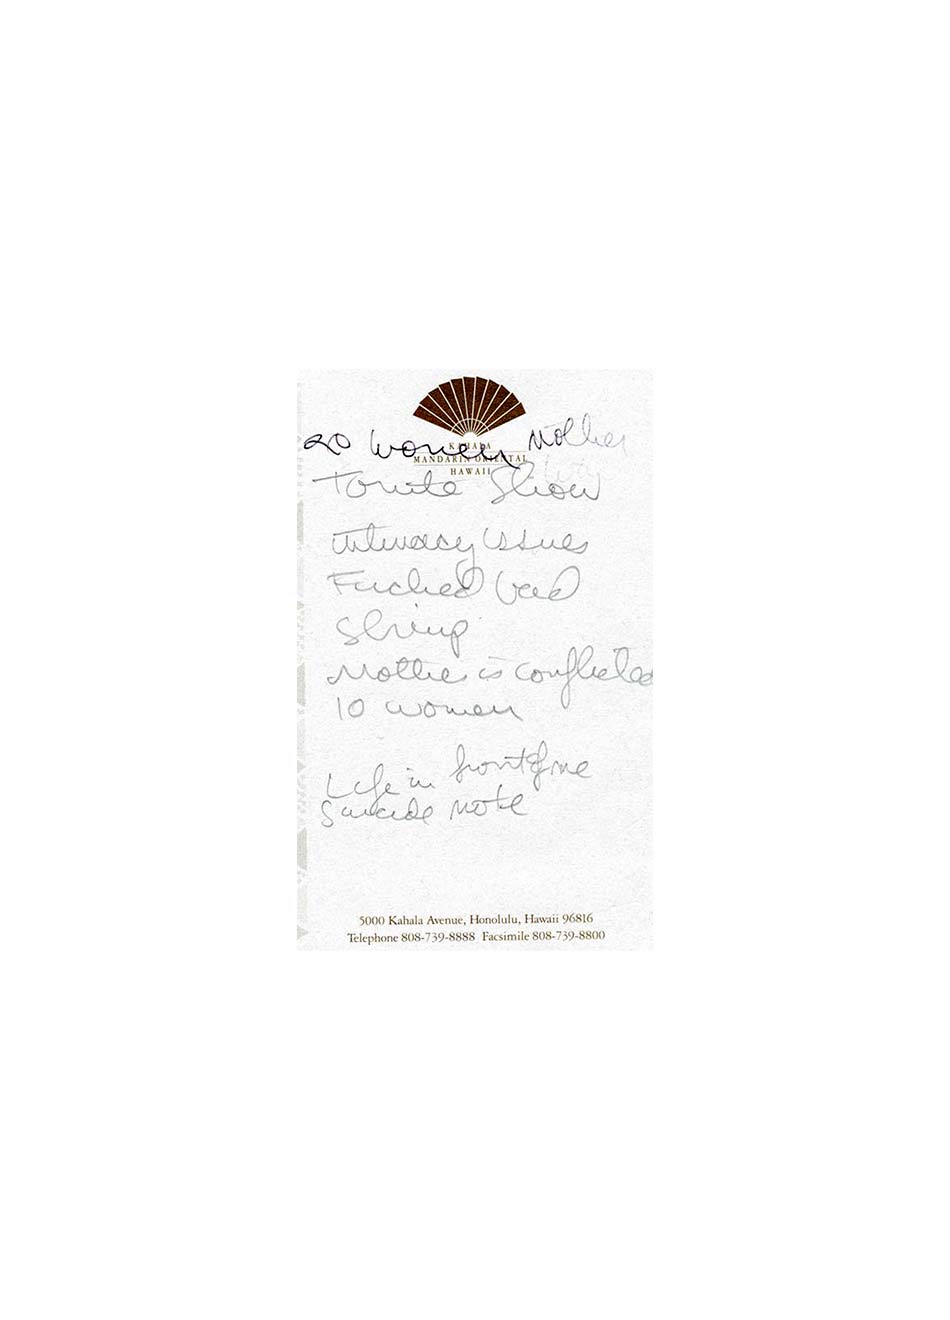 20 women Mother
KAHALA
MANDARIN ORIENTAL
HAWAII
Tonite Show
intimacy issues
Fucked
Shrimp
Mother is conflicted
10 women
Life in front of me
Suicide note
5000 Kahala Avenue, Honolulu, Hawaii 96816
Telephone 808-739-8888 Facsimile 808-739-8800